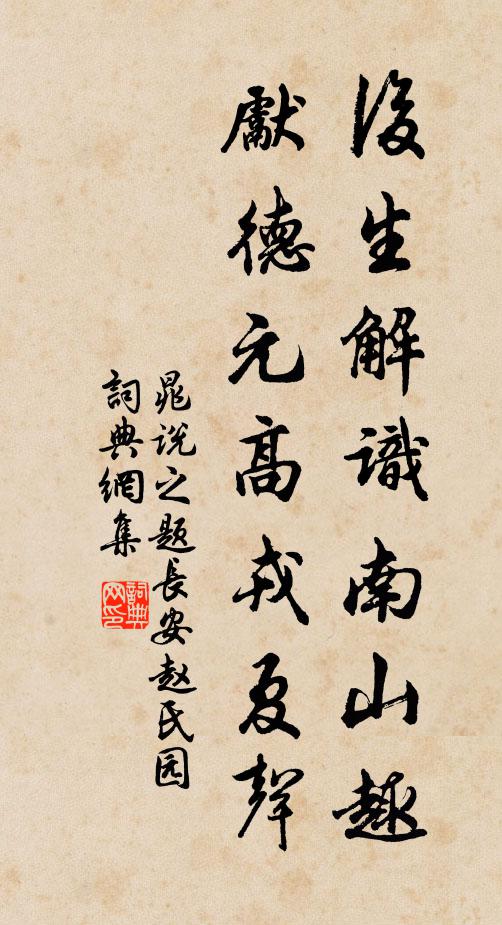 後生解識南山趣
獻德元高戎夏聲
晁說之題長安赵民园
詞典網集
詞典
网印